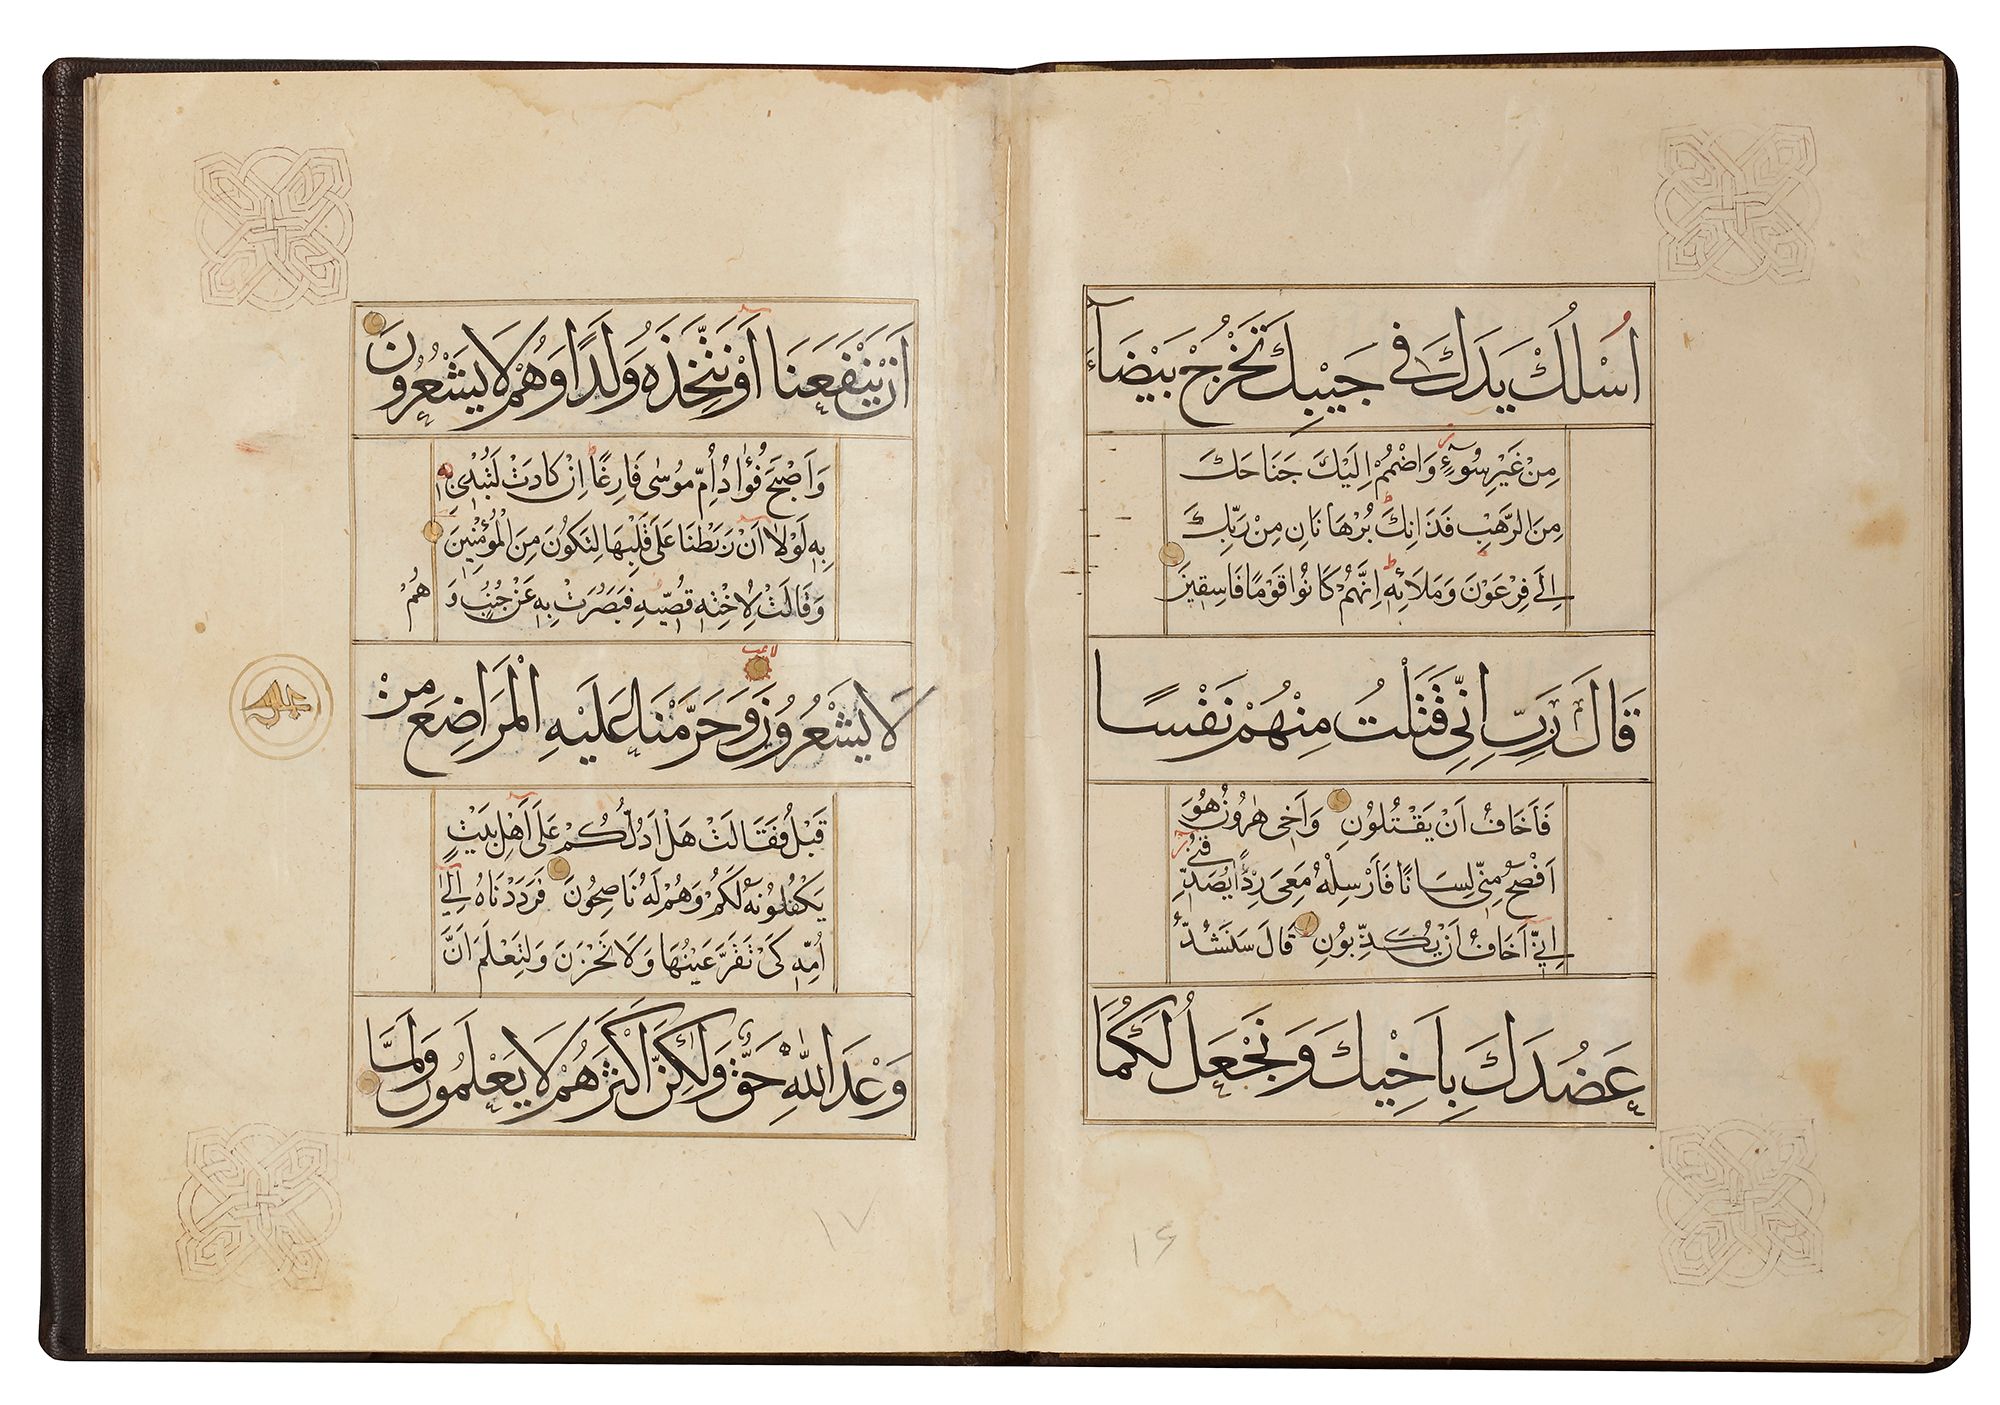 اُسْلُكْ يَدَكَ فِى جَيْبِكَ تَخْرُجْ بَيْضَآءَ
مِنْ غَيْرِ سُوۤءٍ وَاضْمُمْ اِلَيْكَ جَنَاحَكَ
مِنَ الرَّهْبِ فَذَانِكَ بُرْهَانَانِ مِنْ رَبِّكَ
اِلَى فِرْعَوْنَ وَمَلَائِهٖ اِنَّهُمْ كَانُوا قَوْمًا فَاسِقِينَ
قَالَ رَبِّ اِنِّى قَتَلْتُ مِنْهُمْ نَفْسًا
فَاَخَافُ اَنْ يَقْتُلُونِ وَاَخِى هٰرُونُ هُوَ
اَفْصَحُ مِنِّى لِسَانًا فَاَرْسِلْهُ مَعِىَ رِدْءًا يُصَدِّقُنِى
اِنِّىۤ اَخَافُ اَنْ يُكَذِّبُونِ قَالَ سَنَشُدُّ
عَضُدَكَ بِاَخِيكَ وَنَجْعَلُ لَكُمَا
١٦
اَنْ يَنْفَعَنَا اَوْ نَتَّخِذَهُ وَلَدًا وَهُمْ لَا يَشْعُرُونَ
وَاَصْبَحَ فُؤَادُ اُمِّ مُوسٰى فَارِغًا اِنْ كَادَتْ لَتُبْدِى بِهٖ
بِهٖ لَوْلَا اَنْ رَبَطْنَا عَلَى قَلْبِهَا لِتَكُونَ مِنَ الْمُؤْمِنِينَ
وَقَالَتْ لِاُخْتِهٖ قُصِّيهِ فَبَصُرَتْ بِهٖ عَنْ جُنُبٍ وَهُمْ
لَا يَشْعُرُونَ وَحَرَّمْنَا عَلَيْهِ الْمَرَاضِعَ مِنْ
قَبْلُ فَقَالَتْ هَلْ اَدُلُّكُمْ عَلَى اَهْلِ بَيْتٍ
يَكْفُلُونَهُ لَكُمْ وَهُمْ لَهُ نَاصِحُونَ فَرَدَدْنَاهُ اِلَىٰ
اُمِّهٖ كَىْ تَقَرَّ عَيْنُهَا وَلَا تَحْزَنَ وَلِتَعْلَمَ اَنَّ
وَعْدَ اللّٰهِ حَقٌّ وَلٰكِنَّ اَكْثَرَهُمْ لَا يَعْلَمُونَ وَلَمَّا
١٧